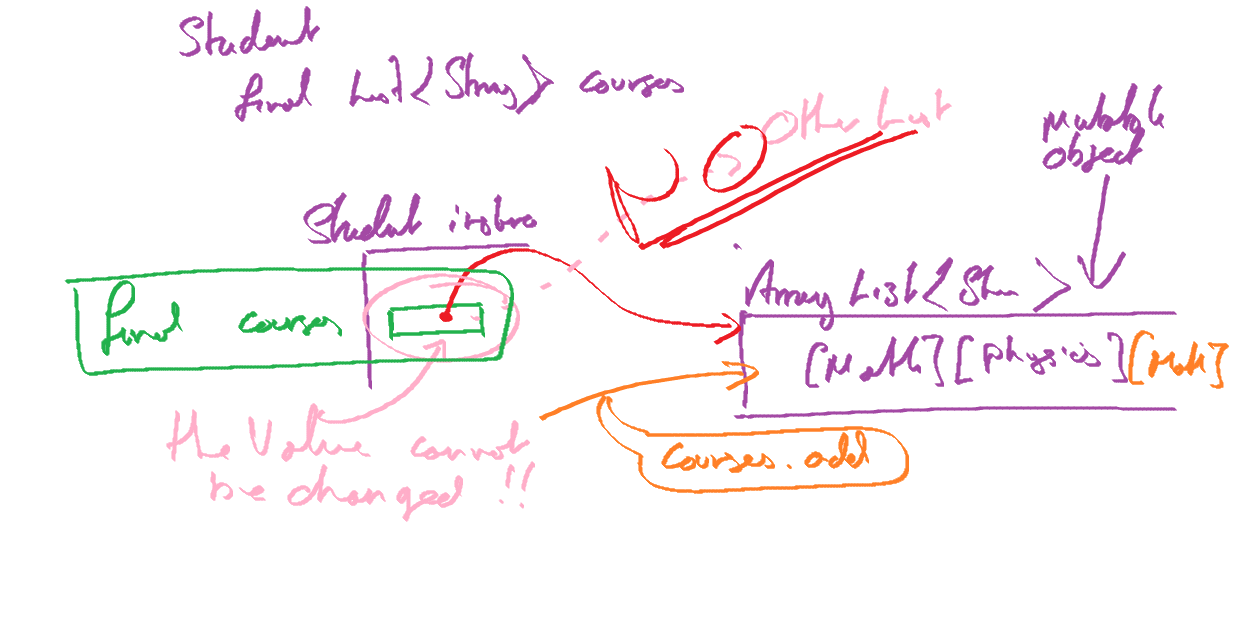 Student
final List<String> courses
Other List
Mutable
object
Student
final courses
ArrayList<
[Math] [physics] [Math]
the Value cannot
be changed !!
courses.add